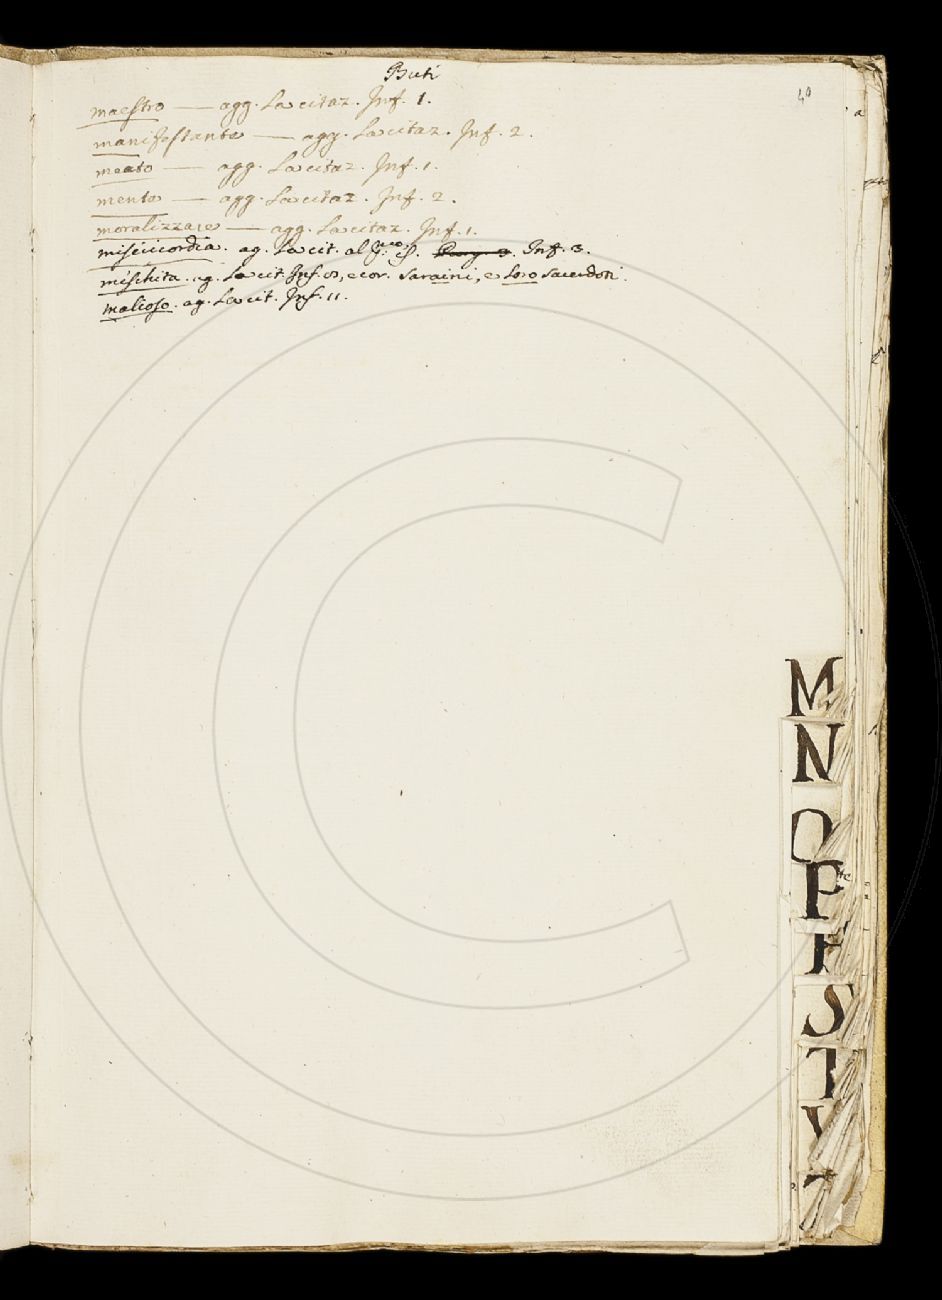 Buti
40
maestro — agg. La citaz. Inf. 1.
manifestante — agg. La citaz. Inf. 2.
meato — agg. La citaz. Inf. 1.
mente — agg. La citaz. Inf. 2.
moralizzare — agg. La citaz. Inf. 1.
misericordia. ag. La cit. al §. Inf. 3.
mischita. ag. La cit. Inf. 8, e cor. Saraini, e Loro Sacerdoti.
malioso. ag. La cit. Inf. 11.
M
N
O
P
S
T
V